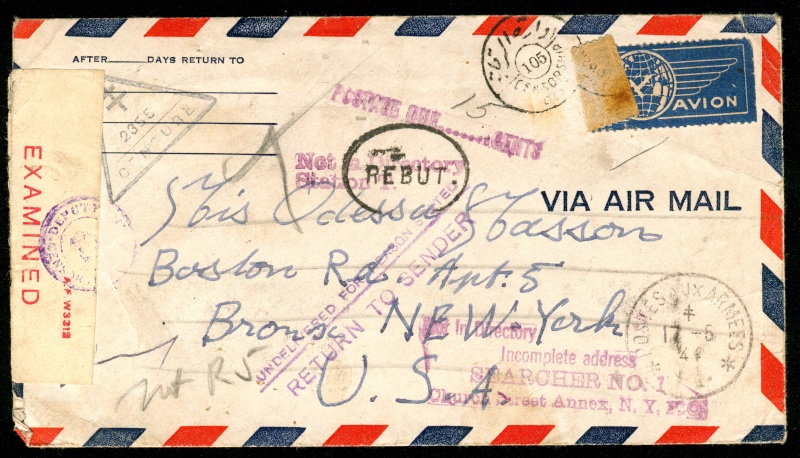 AFTER____DAYS RETURN TO
105
CENSOR
AVION
2355
CENSURE
POSTAGE DUE.......CENTS
15
Not in Directory
Station
REBUT.
VIA AIR MAIL
EXAMINED
DEPUTY
W3312
Odessa
Boston Rd. Apt. 5
Bronx, NEW-York
U.S.A
UNDELIVERED FOR REASON STATED
RETURN TO SENDER
POSTES AUX ARMEES
17-5
4
Not in Directory
Incomplete address
SEARCHER NO. 1
Church Street Annex, N. Y. P.O.
not R5